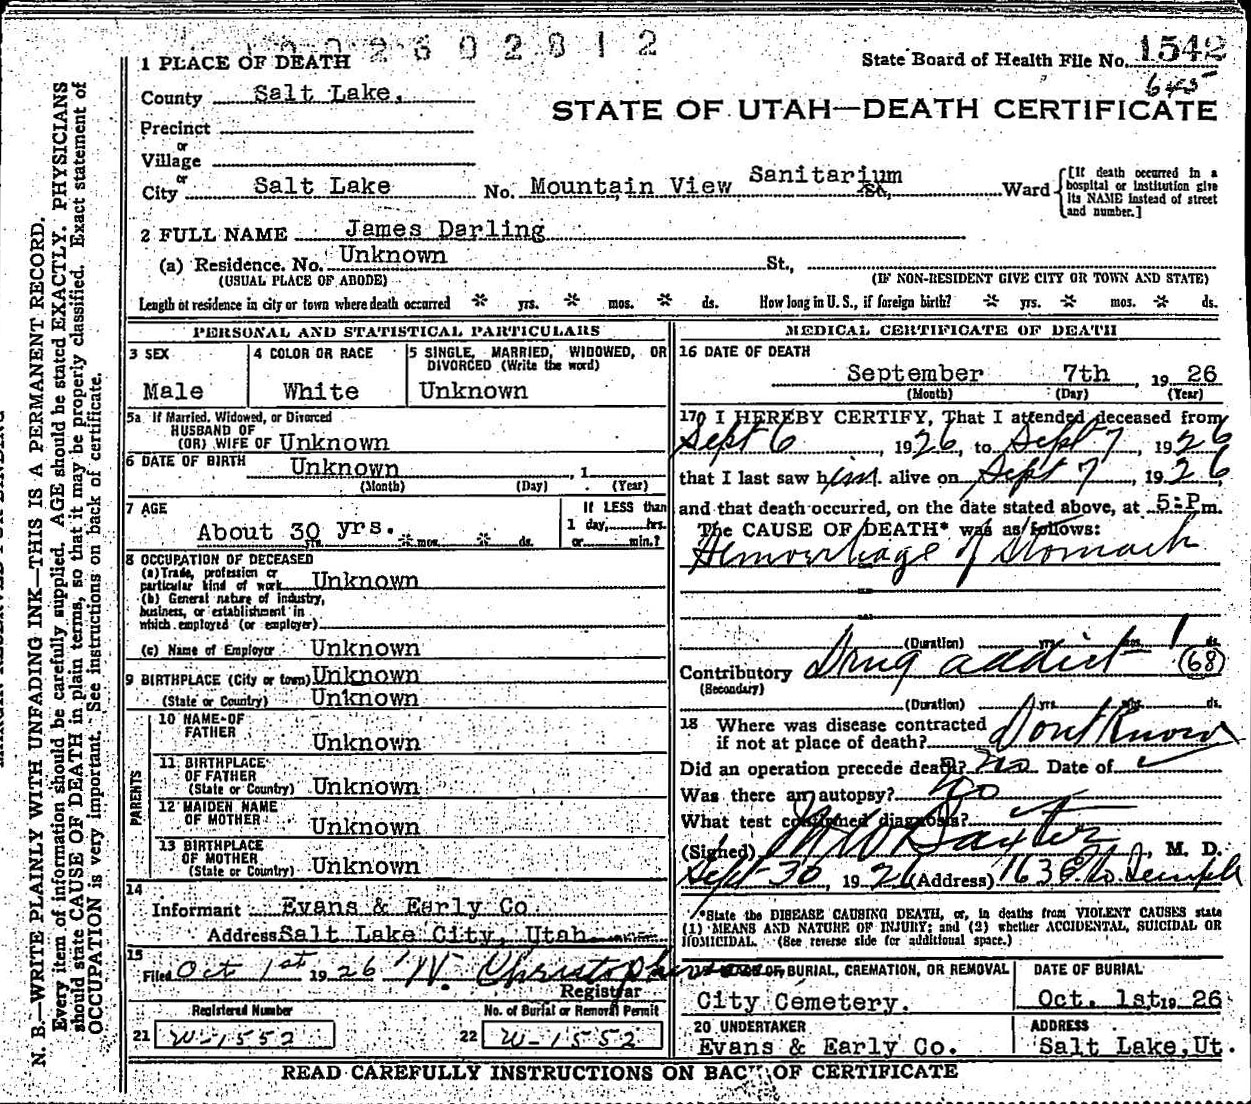 1002602812
1 PLACE OF DEATH
State Board of Health File No. 1542
645
County Salt Lake,
STATE OF UTAH—DEATH CERTIFICATE
Precinct
or
Village
or
City Salt Lake No. Mountain View Sanitarium St, Ward
[If death occurred in a hospital or institution give its NAME instead of street and number.]
2 FULL NAME James Darling
(a) Residence. No. Unknown St.,
(USUAL PLACE OF ABODE) (IF NON-RESIDENT GIVE CITY OR TOWN AND STATE)
Length of residence in city or town where death occurred * yrs. * mos. * ds. How long in U. S., if foreign birth? * yrs. * mos. * ds.
PERSONAL AND STATISTICAL PARTICULARS
3 SEX
Male
4 COLOR OR RACE
White
5 SINGLE, MARRIED, WIDOWED, OR
DIVORCED (Write the word)
Unknown
5a If Married, Widowed, or Divorced
HUSBAND OF
(OR) WIFE OF Unknown
6 DATE OF BIRTH Unknown , 1
(Month) (Day) (Year)
7 AGE
About 30 yrs. * mos. * ds.
If LESS than
1 day, hrs.
or min.?
8 OCCUPATION OF DECEASED
(a) Trade, profession or
particular kind of work Unknown
(b) General nature of industry,
business, or establishment in
which employed (or employer)
(c) Name of Employer Unknown
9 BIRTHPLACE (City or town) Unknown
(State or Country) Unknown
PARENTS
10 NAME OF
FATHER
Unknown
11 BIRTHPLACE
OF FATHER
(State or Country) Unknown
12 MAIDEN NAME
OF MOTHER Unknown
13 BIRTHPLACE
OF MOTHER
(State or Country) Unknown
14
Informant Evans & Early Co.
Address Salt Lake City, Utah
15
Filed Oct 1st 1926 W. Christopherson
Registrar
Registered Number
21 W-1552
No. of Burial or Removal Permit
22 W-1552
MEDICAL CERTIFICATE OF DEATH
16 DATE OF DEATH
September 7th , 19 26
(Month) (Day) (Year)
17 I HEREBY CERTIFY, That I attended deceased from
Sept 6 , 1926, to Sept 7 , 1926
that I last saw him alive on Sept 7 , 1926
and that death occurred, on the date stated above, at 5:P m.
The CAUSE OF DEATH* was as follows:
Hemorrhage of Stomach
(Duration) yrs. mos. 1 ds.
Contributory Drug addict (68)
(Secondary)
(Duration) yrs. mos. ds.
18 Where was disease contracted
if not at place of death? Dont Know
Did an operation precede death? no Date of
Was there an autopsy? no
What test confirmed diagnosis?
(Signed) Baxter , M. D.
Sept 30 , 1926 (Address) 163 E So Temple
*State the DISEASE CAUSING DEATH, or, in deaths from VIOLENT CAUSES state
(1) MEANS AND NATURE OF INJURY; and (2) whether ACCIDENTAL, SUICIDAL OR
HOMICIDAL. (See reverse side for additional space.)
OF BURIAL, CREMATION, OR REMOVAL
City Cemetery.
DATE OF BURIAL
Oct. 1st, 19 26
20 UNDERTAKER
Evans & Early Co.
ADDRESS
Salt Lake, Ut.
READ CAREFULLY INSTRUCTIONS ON BACK OF CERTIFICATE
N. B.—WRITE PLAINLY WITH UNFADING INK—THIS IS A PERMANENT RECORD.
Every item of information should be carefully supplied. AGE should be stated EXACTLY. PHYSICIANS
should state CAUSE OF DEATH in plain terms, so that it may be properly classified. Exact statement of
OCCUPATION is very important. See instructions on back of certificate.